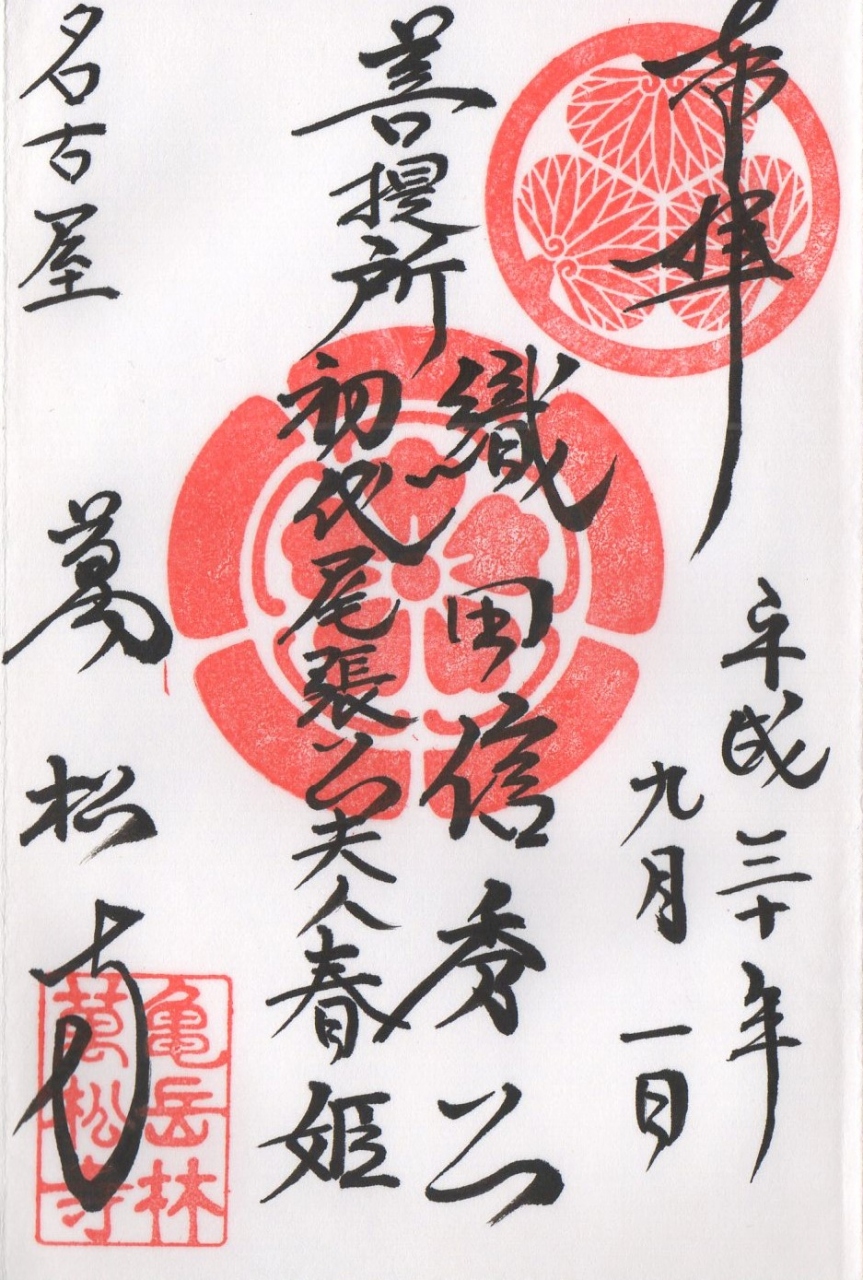 奉拝
平成三十年
九月一日
菩提所
織田信秀公
初代尾張公夫人春姫
名古屋
萬松寺
亀岳林
萬松寺